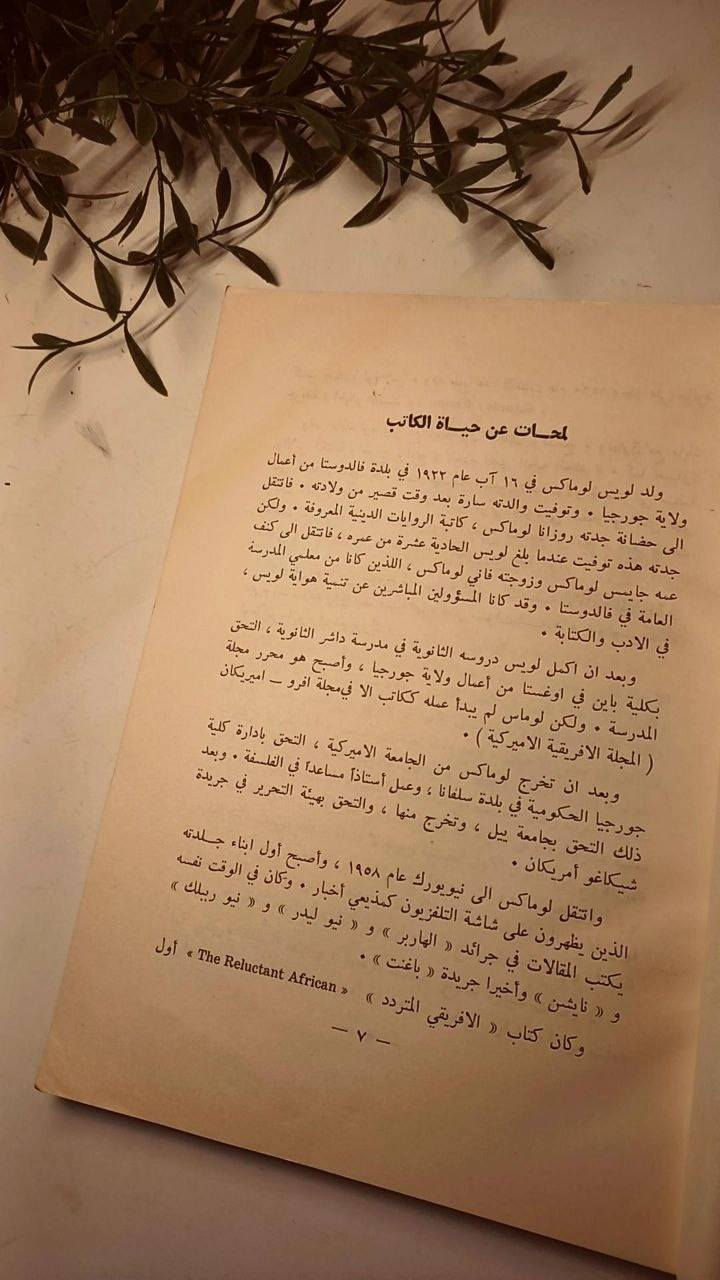 لمحـات عن حيـاة الكاتب
ولد لويس لوماكس في ١٦ آب عام ١٩٢٢ في بلدة فالدوستا من أعمال
ولاية جورجيا ٠ وتوفيت والدته سارة بعد وقت قصير من ولادته ٠ فانتقل
الى حضانة جدته روزانا لوماكس ، كاتبة الروايات الدينية المعروفة ٠ ولكن
جدته هذه توفيت عندما بلغ لويس الحادية عشرة من عمره ، فانتقل الى كنف
عمه جايمس لوماكس وزوجته فاني لوماكس ، اللذين كانا من معلمي المدرسة
العامة في فالدوستا ٠ وقد كانا المسؤولين المباشرين عن تنمية هواية لويس ،
في الادب والكتابة ٠
وبعد ان اكمل لويس دروسه الثانوية في مدرسة داشر الثانوية ، التحق
بكلية باين في اوغستا من أعمال ولاية جورجيا ، وأصبح هو محرر مجلة
المدرسة ٠ ولكن لوماس لم يبدأ عمله ككاتب الا في مجلة افرو ــ اميريكان
( المجلة الافريقية الاميركية ) ٠
وبعد ان تخرج لوماكس من الجامعة الاميركية ، التحق بادارة كلية
جورجيا الحكومية في بلدة سلفانا ، وعمل أستاذاً مساعداً في الفلسفة ٠ وبعد
ذلك التحق بجامعة ييل ، وتخرج منها ، والتحق بهيئة التحرير في جريدة
شيكاغو أمريكان ٠
وانتقل لوماكس الى نيويورك عام ١٩٥٨ ، وأصبح أول ابناء جـلدته
الذين يظهرون على شاشة التلفزيون كمذيعي أخبار ٠ وكان في الوقت نفسه
يكتب المقالات في جرائد « الهاربر » و « نيو ليدر » و « نيو ربيلك »
و « نايشن » وأخيرا جريدة « باغنت » ٠
وكان كتاب « الافريقي المتردد » « The Reluctant African » أول
— ٧ —